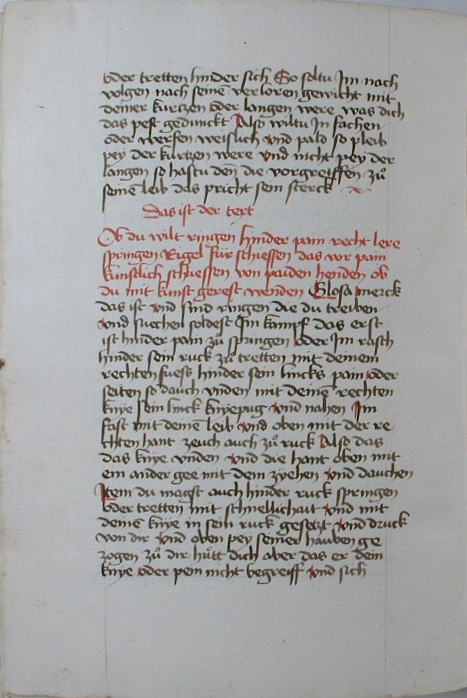 oder tretten hinder sich So soltu Im nach
volgen nach seinē verloren gewicht mit
deiner kurtzen oder langen were was dich
das pest gedunckt Also wiltu In fachen
oder werfen weislich vnd pald so pleib
pey der kurtzen were vnd nicht pey der
langen so hastu den die vorgreiffen zů
seinē leib das pricht sein sterck
Das ist der text
Ob du wilt ringen hinder pain recht lere
springen Rigel für schiessen das vor pain
künstlich schliessen von paiden henden ob
du mit kunst gerest wenden Glosa merck
das ist vnd sind ringen die du treiben
vnd suechen soldest Im kampf das erst
ist hinder pain zů springen oder Im rasch
hinder sein ruck zů tretten mit deinem
rechten fuess hinder sein lincks pain oder
seiten so dauch vnden mit deinē rechten
knye sein linck knyepug vnd nahen Im
fast mit deinē leib vnd oben mit der re
chten hant zeuch auch zů ruck Also das
das knye vnden vnd die hant oben mit
ein ander gee mit dem zyehen vnd dauchen
Item du magst auch hinder ruck springen
oder tretten mit schnellichait vnd mit
deinē knye in sein ruck gesetzt vnd druck
von dir vnd oben pey seiner hauben ge
zogen zů dir hütt dich aber das er dein
knye oder pein nicht begreiff vnd sich